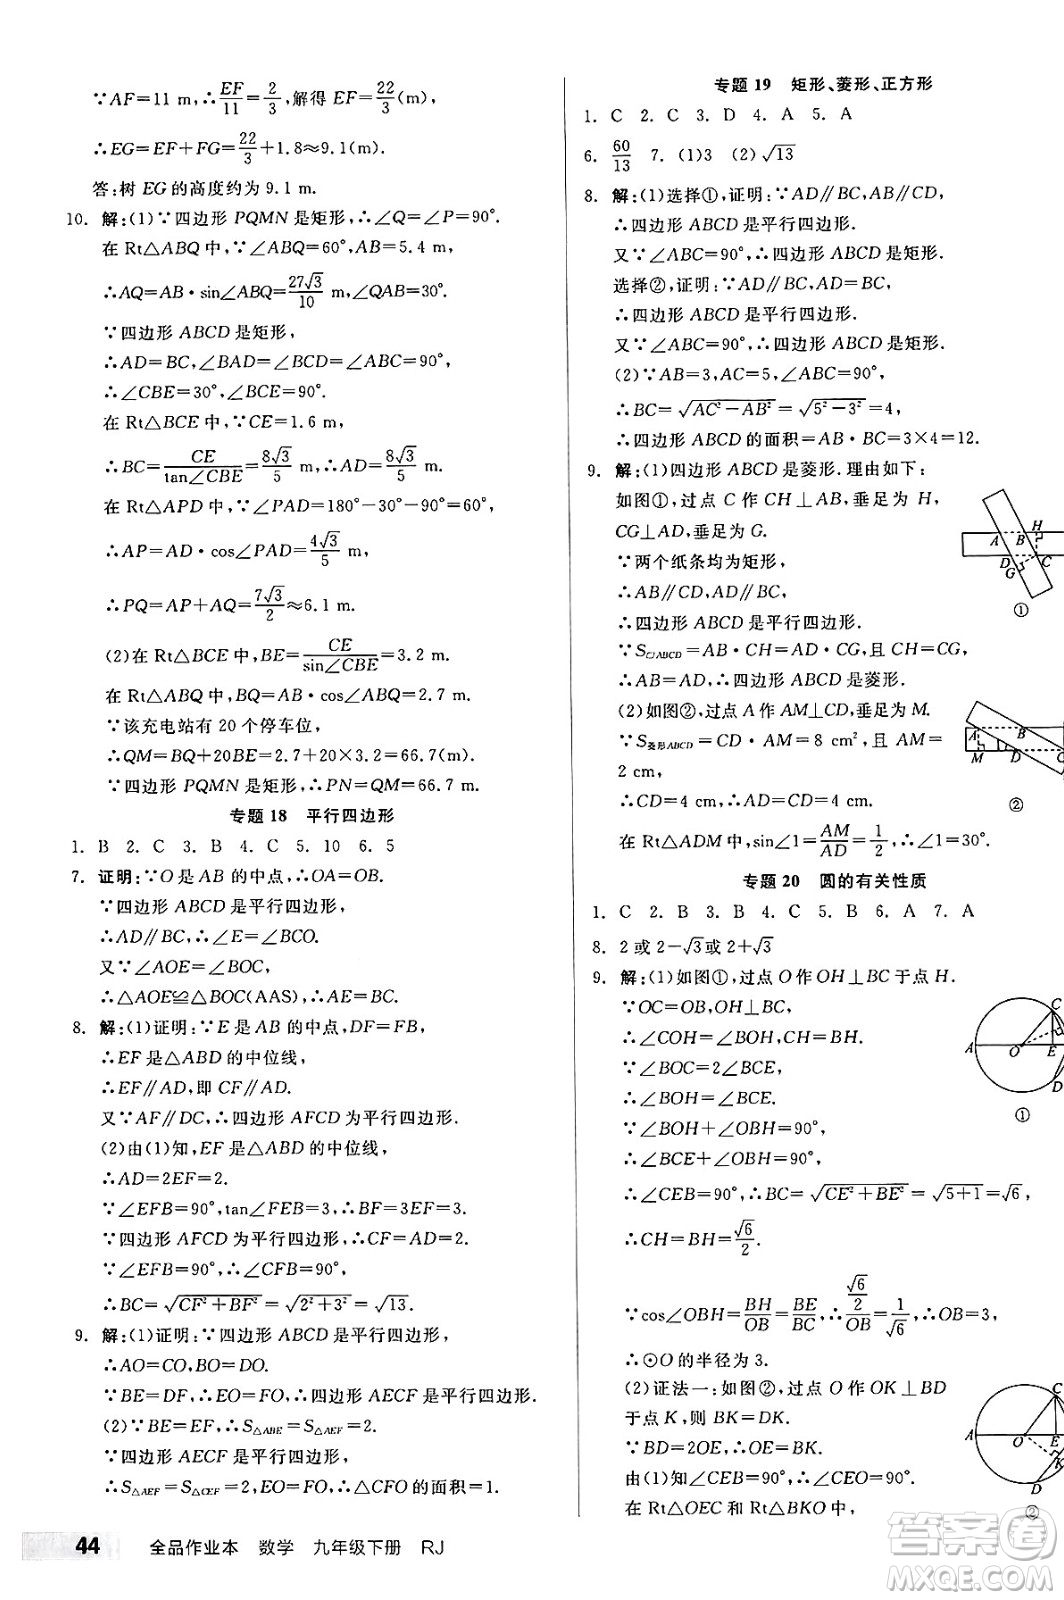 ∵AF=11 m,∴EF/11=2/3,解得 EF=22/3(m),
∴EG=EF+FG=22/3+1.8≈9.1(m).
答:树 EG 的高度约为 9.1 m.
10. 解:(1)∵四边形 PQMN 是矩形,∴∠Q=∠P=90°.
在 Rt△ABQ 中,∵∠ABQ=60°,AB=5.4 m,
∴AQ=AB·sin∠ABQ=27√3/10 m,∠QAB=30°.
∵四边形 ABCD 是矩形,
∴AD=BC,∠BAD=∠BCD=∠ABC=90°,
∴∠CBE=30°,∠BCE=90°.
在 Rt△BCE 中,∵CE=1.6 m,
∴BC=CE/tan∠CBE=8√3/5 m,∴AD=8√3/5 m.
在 Rt△APD 中,∵∠PAD=180°-30°-90°=60°,
∴AP=AD·cos∠PAD=4√3/5 m,
∴PQ=AP+AQ=7√3/2≈6.1(m).
(2)在 Rt△BCE 中,BE=CE/sin∠CBE=3.2 m.
在 Rt△ABQ 中,BQ=AB·cos∠ABQ=2.7 m.
∵该充电站有 20 个停车位,
∴QM=BQ+20BE=2.7+20×3.2=66.7(m).
∵四边形 PQMN 是矩形,∴PN=QM=66.7 m.
专题 18 平行四边形
1. B 2. C 3. B 4. C 5. 10 6. 5
7. 证明:∵O 是 AB 的中点,∴OA=OB.
∵四边形 ABCD 是平行四边形,
∴AD∥BC,∴∠E=∠BCO.
又∵∠AOE=∠BOC,
∴△AOE≌△BOC(AAS),∴AE=BC.
8. 解:(1)证明:∵E 是 AB 的中点,DF=FB,
∴EF 是△ABD 的中位线,
∴EF∥AD,即 CF∥AD.
又∵AF∥DC,∴四边形 AFCD 为平行四边形.
(2)由(1)知,EF 是△ABD 的中位线,
∴AD=2EF=2.
∵∠EFB=90°,tan∠FEB=3,∴BF=3EF=3.
∵四边形 AFCD 为平行四边形,∴CF=AD=2.
∵∠EFB=90°,∴∠CFB=90°,
∴BC=√CF²+BF²=√2²+3²=√13.
9. 解:(1)证明:∵四边形 ABCD 是平行四边形,
∴AO=CO,BO=DO.
∵BE=DF,∴EO=FO,∴四边形 AECF 是平行四边形.
(2)∵BE=EF,∴S△ABE=S△AEF=2.
∵四边形 AECF 是平行四边形,
∴S△AEF=S△CEF=2,EO=FO,∴△CFO 的面积=1.
44 全品作业本 数学 九年级下册 RJ
专题 19 矩形、菱形、正方形
1. C 2. C 3. D 4. A 5. A
6. 60/13 7. (1)3 (2)√13
8. 解:(1)选择①,证明:∵AD∥BC,AB∥CD,
∴四边形 ABCD 是平行四边形.
又∵∠ABC=90°,∴四边形 ABCD 是矩形.
选择②,证明:∵AD∥BC,AD=BC,
∴四边形 ABCD 是平行四边形.
又∵∠ABC=90°,∴四边形 ABCD 是矩形.
(2)∵AB=3,AC=5,∠ABC=90°,
∴BC=√AC²-AB²=√5²-3²=4,
∴四边形 ABCD 的面积=AB·BC=3×4=12.
9. 解:(1)四边形 ABCD 是菱形.理由如下:
如图①,过点 C 作 CH⊥AB,垂足为 H,
CG⊥AD,垂足为 G.
∵两个纸条均为矩形,
∴AB∥CD,AD∥BC,
∴四边形 ABCD 是平行四边形.
∵S▱ABCD=AB·CH=AD·CG,且 CH=CG,
∴AB=AD,∴▱ABCD 是菱形.
A B H D G C ①
(2)如图②,过点 A 作 AM⊥CD,垂足为 M.
∵S菱形ABCD=CD·AM=8 cm²,且 AM=
2 cm,
∴CD=4 cm,∴AD=4 cm.
在 Rt△ADM 中,sin∠1=AM/AD=1/2,∴∠1=30°.
A B M D C ②
专题 20 圆的有关性质
1. C 2. B 3. B 4. C 5. B 6. A 7. A
8. 2 或 2-√3或 2+√3
9. 解:(1)如图①,过点 O 作 OH⊥BC 于点 H.
∵OC=OB,OH⊥BC,
∴∠COH=∠BOH,CH=BH.
∵∠BOC=2∠BCE,
∴∠BOH=∠BCE.
∵∠BOH+∠OBH=90°,
∴∠BCE+∠OBH=90°,
∴∠CEB=90°,∴BC=√CE²+BE²=√5+1=√6,
∴CH=BH=√6/2.
A O E C ①
∵cos∠OBH=BH/OB=BE/BC,∴(√6/2)/OB=1/√6,∴OB=3,
∴⊙O 的半径为 3.
(2)证法一:如图②,过点 O 作 OK⊥BD
于点 K,则 BK=DK.
∵BD=2OE,∴OE=BK.
由(1)知∠CEB=90°,∴∠CEO=90°.
在 Rt△OEC 和 Rt△BKO 中,
A O E C K D ②
答案卷